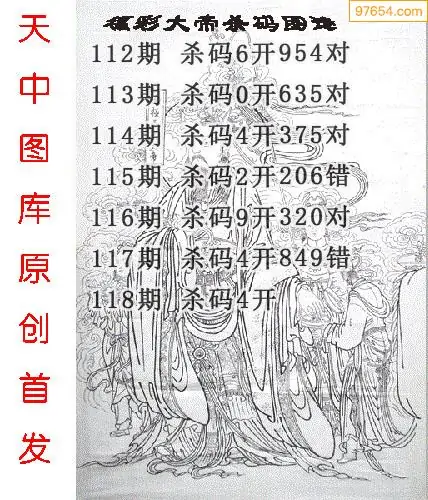 天中图库原创首发
97654.com
彩大帝杀码图
112期 杀码6开954对
113期 杀码0开635对
114期 杀码4开375对
115期 杀码2开206错
116期 杀码9开320对
117期 杀码4开849错
118期 杀码4开